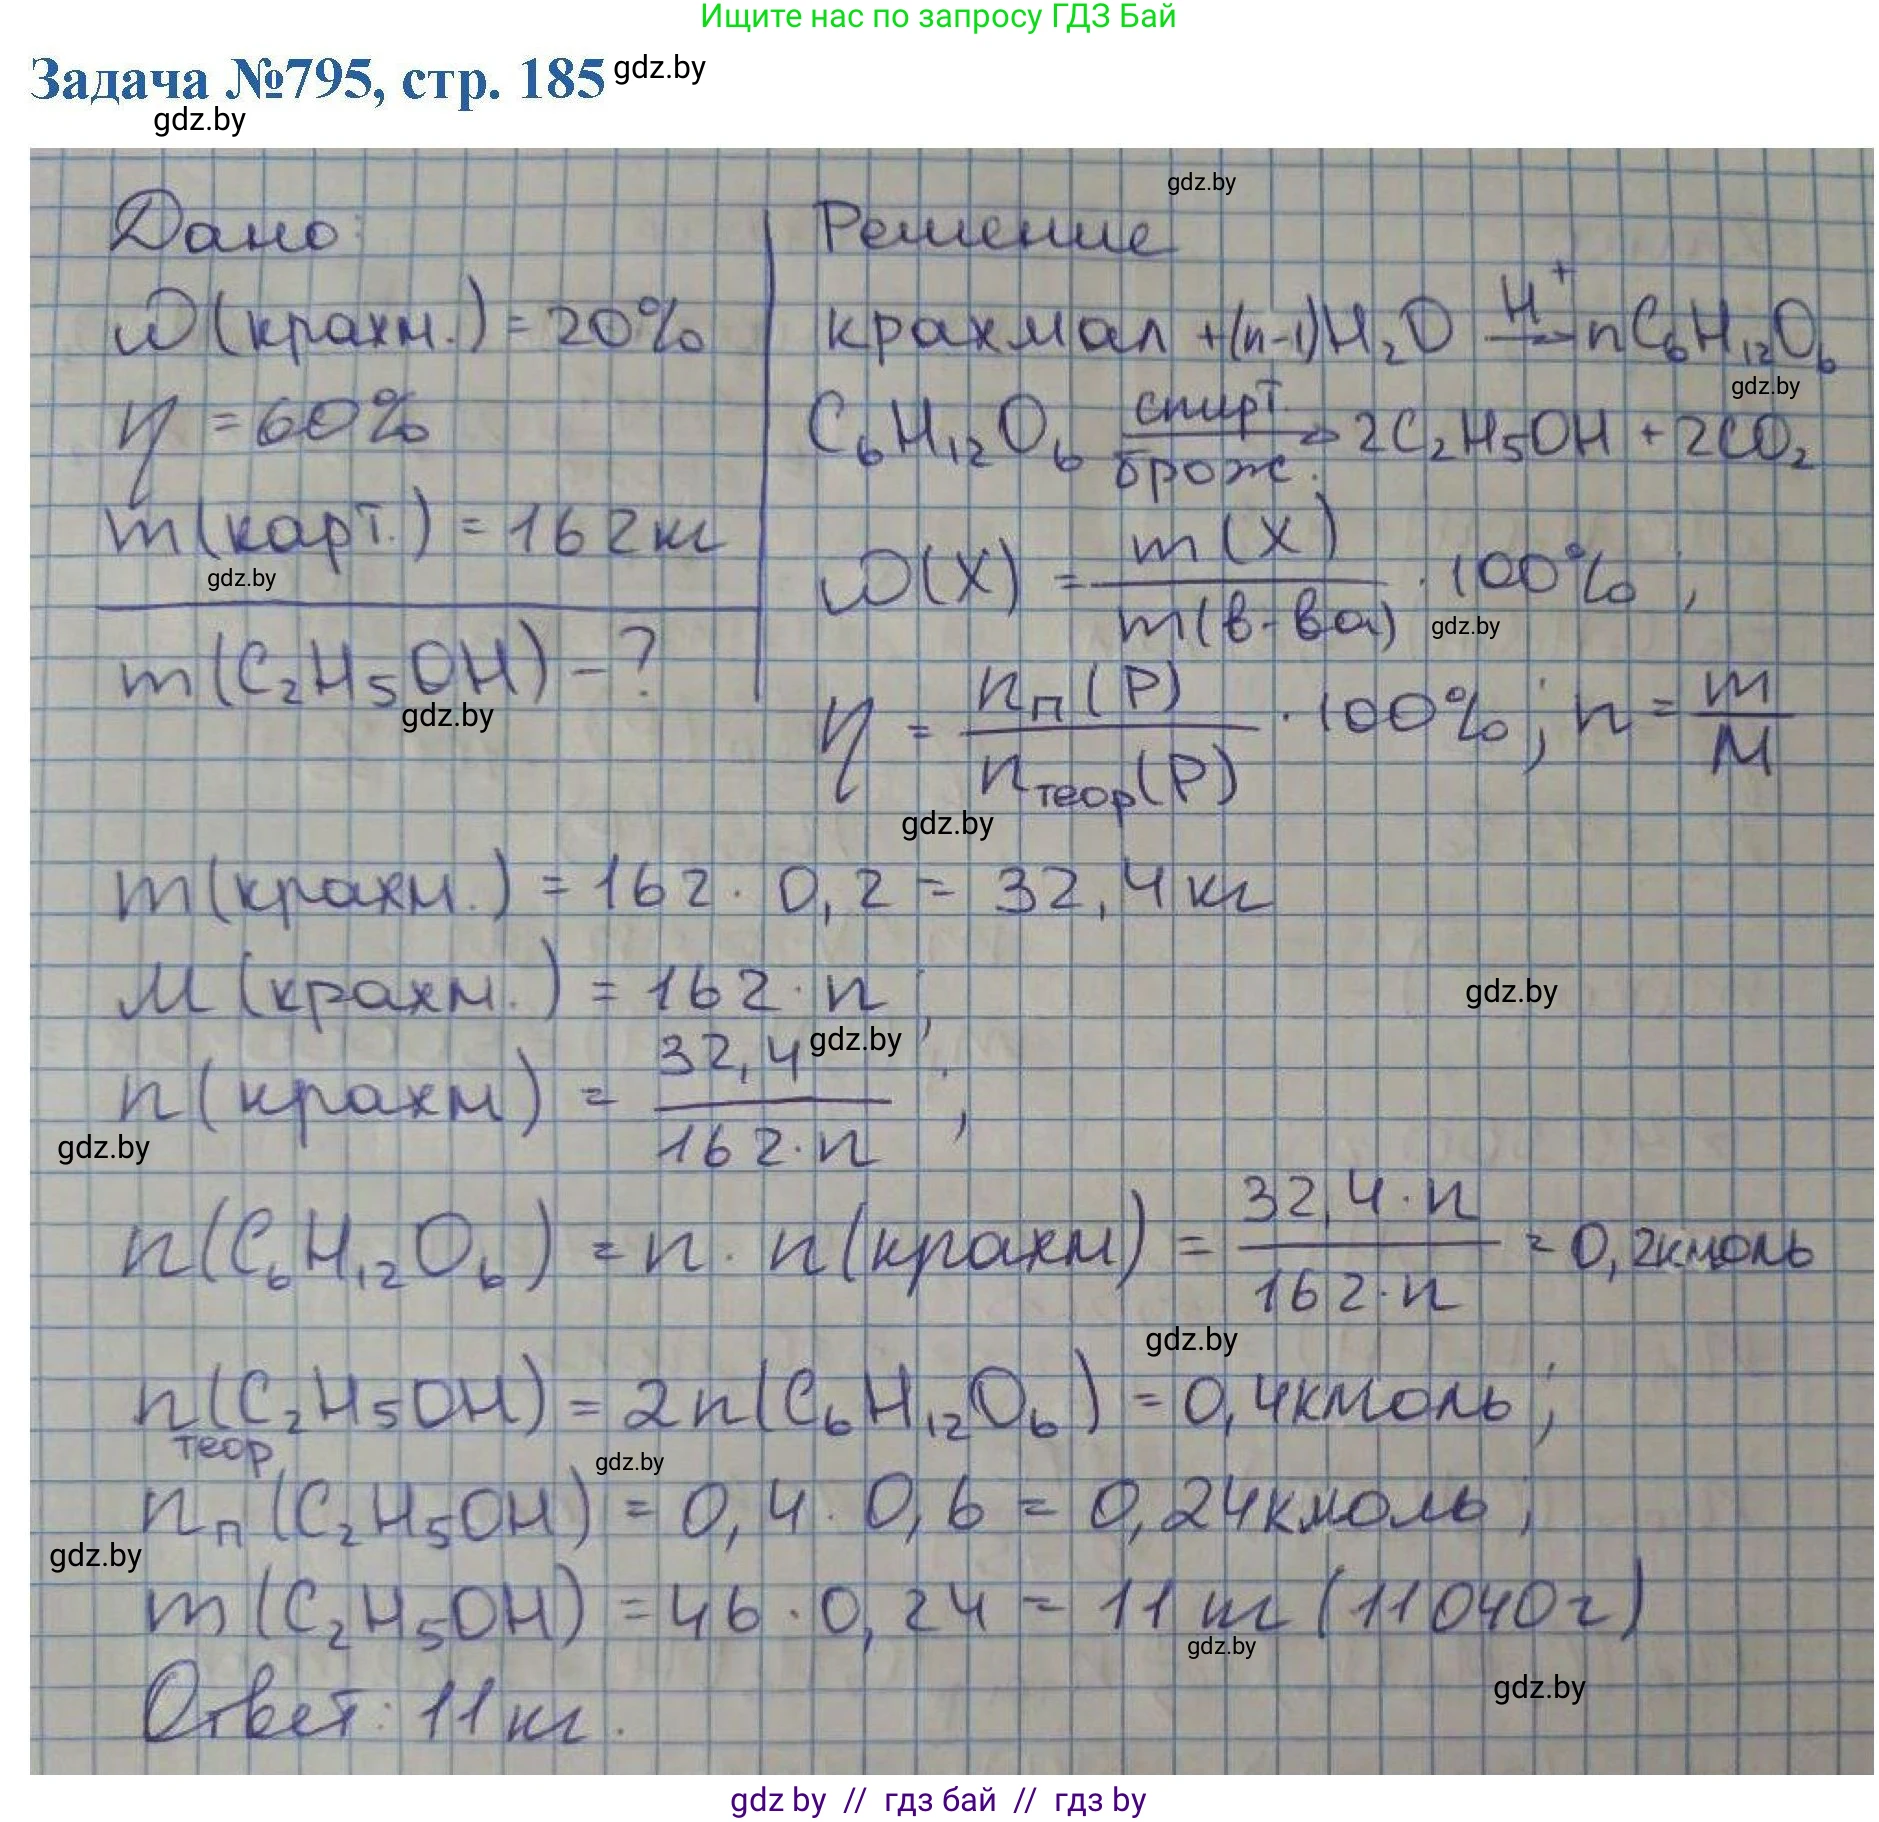 Ищите нас по запросу ГДЗ Бай
Задача №795, стр. 185 gdz.by
gdz.by
gdz.by
Дано:
ω(крахм.) = 20%
η = 60%
m(карт.) = 162кг
gdz.by
m(C₂H₅OH) - ?
gdz.by
Решение
крахмал +(n-1)H₂O —H⁺→ nC₆H₁₂O₆
gdz.by
C₆H₁₂O₆ —спирт. брож.→ 2C₂H₅OH + 2CO₂
ω(X) = m(X) / m(в-ва) · 100% ;
gdz.by
η = nп(P) / nтеор(P) · 100% ; n = m / M
gdz.by
m(крахм.) = 162 · 0,2 = 32,4кг
M(крахм.) = 162·n ;
gdz.by
gdz.by
n(крахм) = 32,4 / 162·n ;
gdz.by
n(C₆H₁₂O₆) = n · n(крахм) = 32,4·n / 162·n = 0,2кмоль
gdz.by
nтеор(C₂H₅OH) = 2n(C₆H₁₂O₆) = 0,4кмоль ;
gdz.by
nп(C₂H₅OH) = 0,4 · 0,6 = 0,24кмоль ;
gdz.by
m(C₂H₅OH) = 46 · 0,24 = 11 кг (11040г)
gdz.by
gdz.by
Ответ: 11кг.
gdz by // гдз бай // гдз by